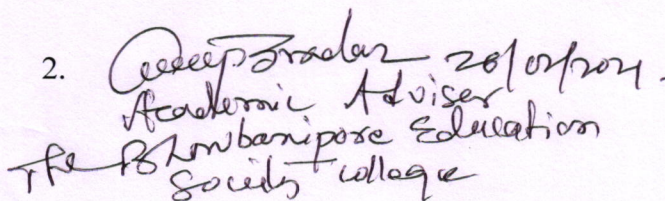 2.
Academic Adviser
The Bhowbanipore Education
Society College